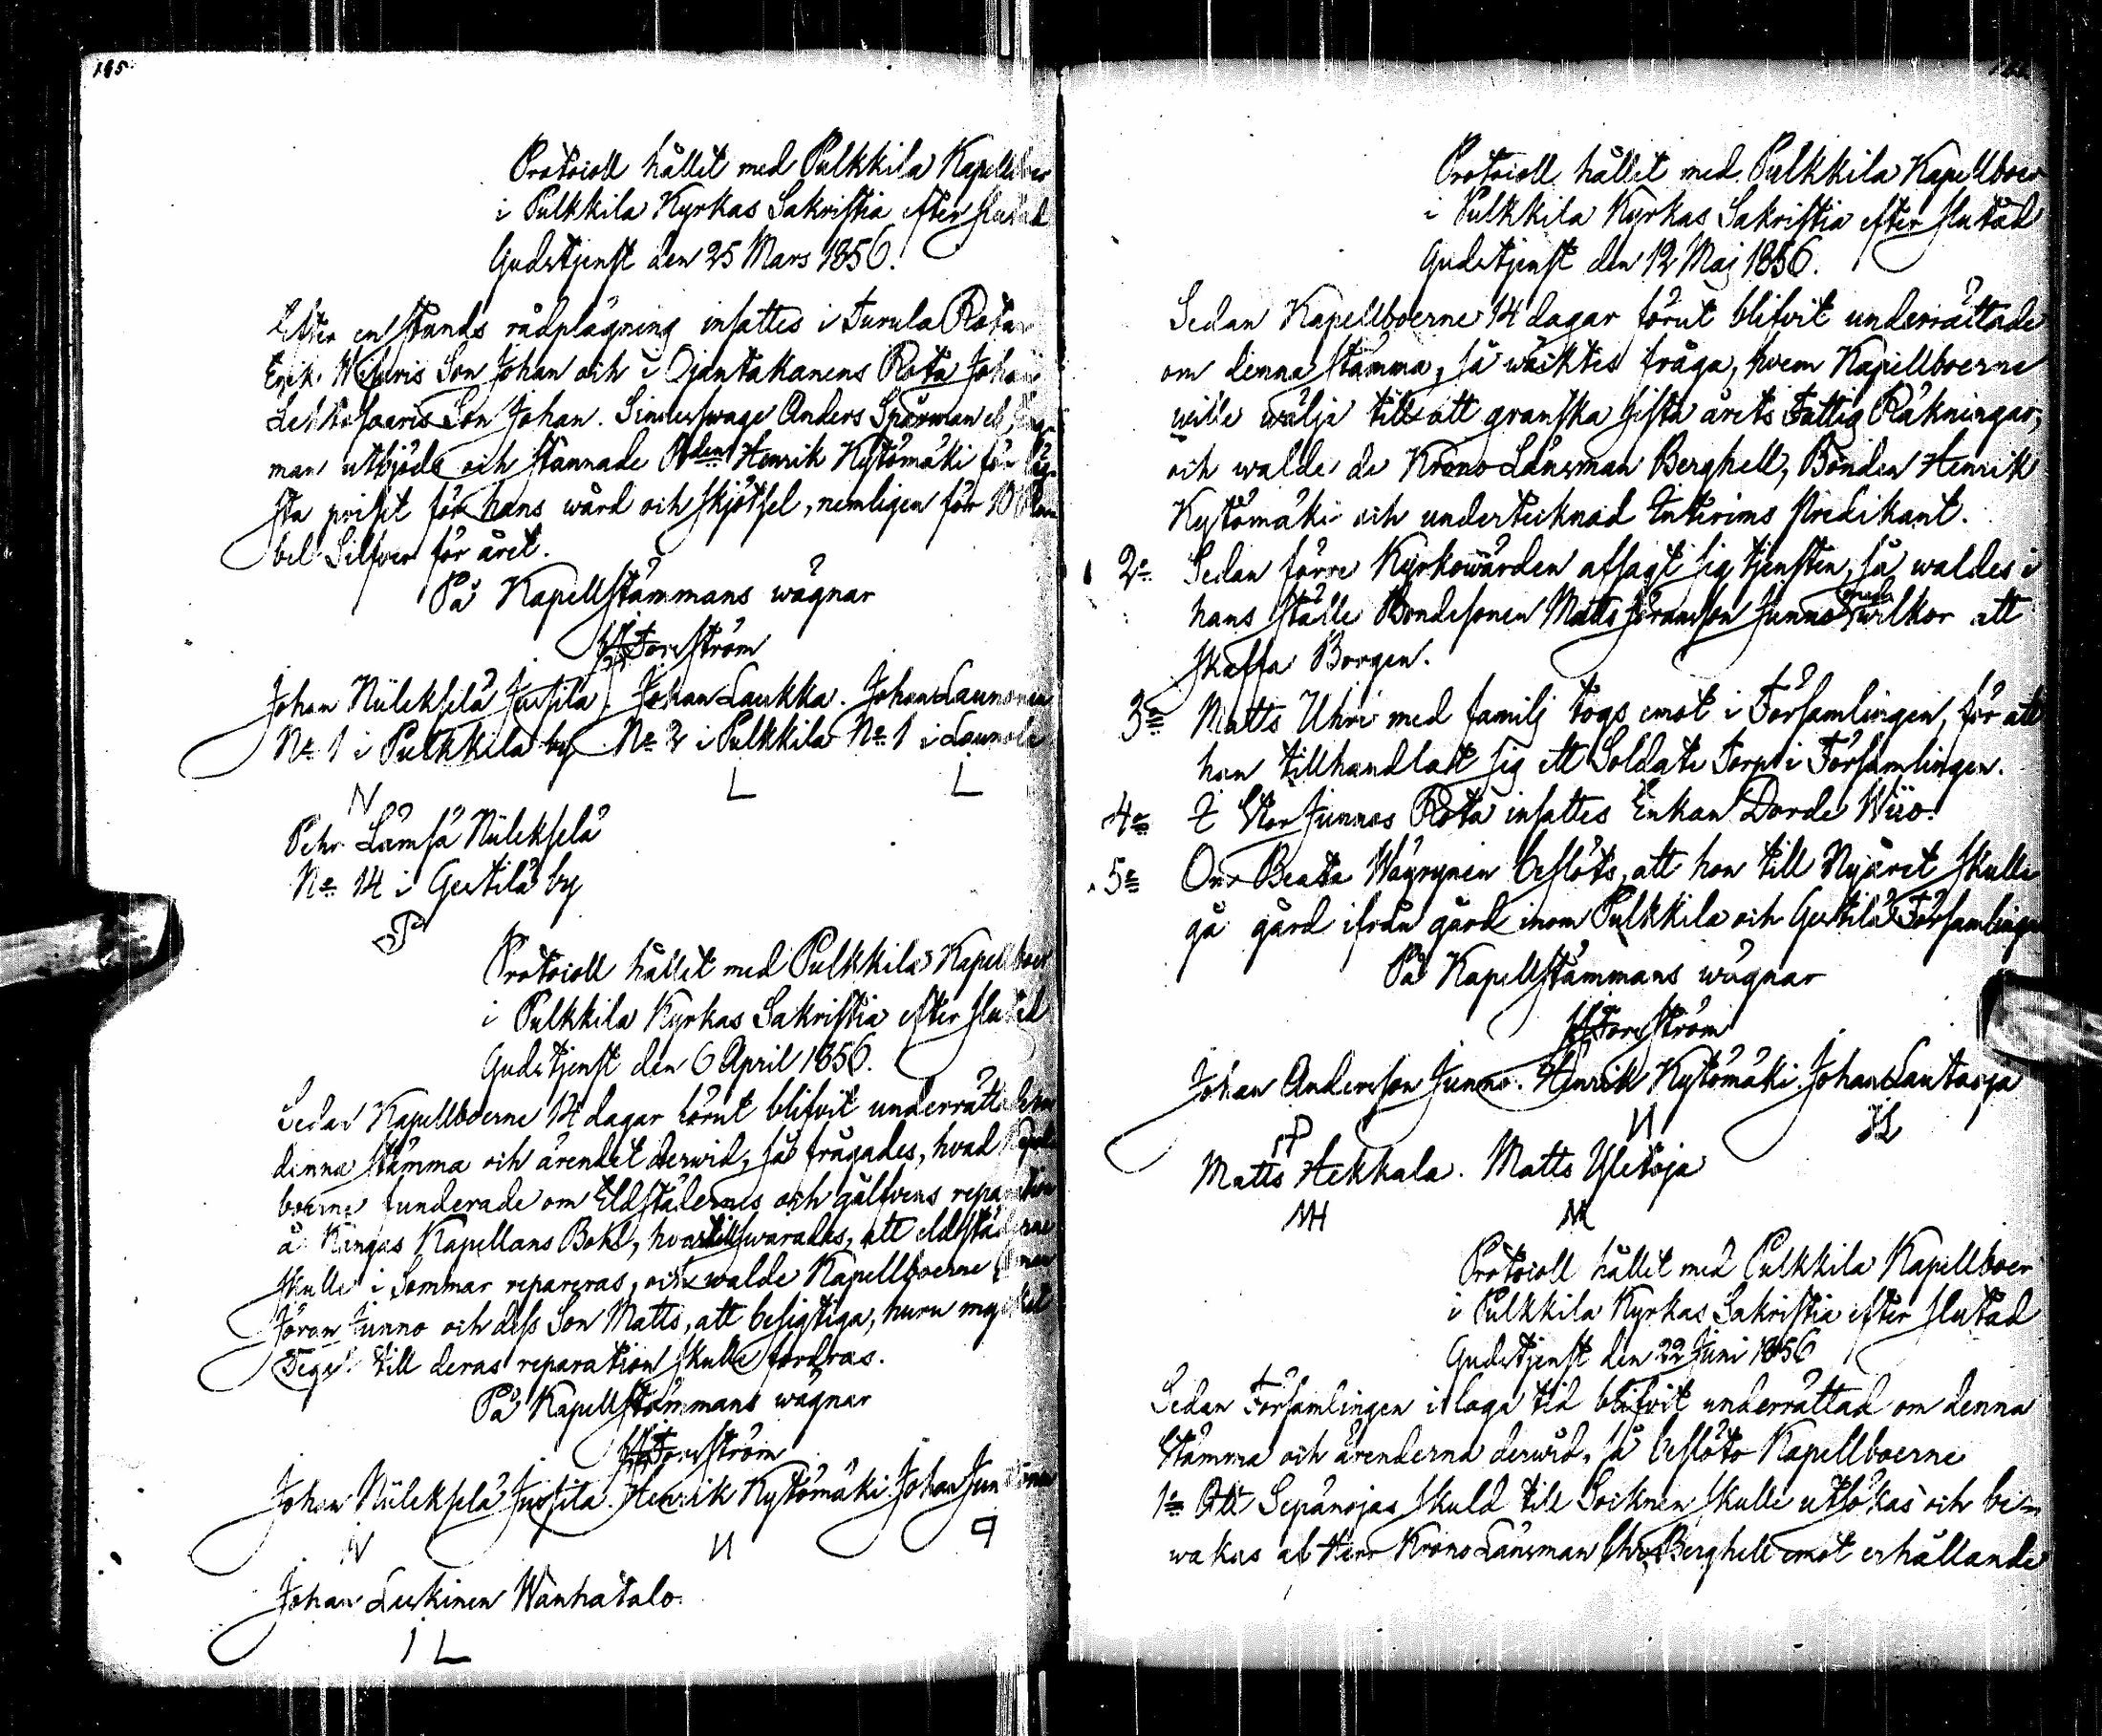 185.
Protocoll hållit med Pulkkila Kapellboer
i Pulkkila Kyrkas Sakristia efter slutad
Gudstjenst den 25 Mars 1856.
Efter en stunds rådplägning insattes i Turula Rota
Erik Son Johan och i Ojantakanens Rota Johan
Lehtosaaris Son Johan. Sinnessvage Anders Spårman
man utbjöds och stannade Henrik Kytömäki för läg-
sta priset för hans wård och skjötsel, nemligen för 10
bel Silfver för året.
På Kapellstämmans wägnar
Forsström
Johan Niilekselä Jussila. Johan Laukka. Johan Launonen
No 1 i Pulkkila by No 2 i Pulkkila No 1 i Launola
N L L
Pehr Lämsä Niilekselä
No 14 i Gertilä by
Protocoll hållit med Pulkkila Kapellboer
i Pulkkila Kyrkas Sakristia efter slutad
Gudstjenst den 6 April 1856.
Sedan Kapellboerne 14 dagar förut blifvit underrättade om
denna stämma och ärendet derwid, så frågades, hvad Kapell
boerne funderade om Eldstädernes och gålfvens reparation
å Kangas Kapellans Bohl, hvartill swarades, att eldstäderne
skulle i Sommar repareras, och walde Kapellboerne
Jöran Junno och dess Son Matts, att besigtiga, huru mycket
Tegel till deras reparation skulle fordras.
På Kapellstämmans wägnar
Forsström
Johan Niilekselä Jussila. Henrik Kytömäki. Johan
N
Johan Leskinen Wanhatalo.
I L
Protocoll hållit med Pulkkila Kapellboer
i Pulkkila Kyrkas Sakristia efter slutad
Gudstjenst den 12 Maj 1856.
Sedan Kapellboerne 14 dagar förut blifvit underrättade
om denna stämma, så wäcktes fråga, hvem Kapellboerne
wille wälja till att granska sista årets Fattig Räkningar,
och walde de Krono Länsman Berghell, Bonden Henrik
Kytömäki och undertecknad Interims Predikant.
2o Sedan förre Kyrkowärden afsagt sig tjensten, så waldes i
hans ställe Bondesonen Matts Jöransson Junno med wilkor att
skaffa Borgen.
3o Matts Uhri med familj togs emot i Församlingen, för att
han tillhandlat sig ett Soldate Torp i Församlingen.
4o I Stor Junnos Rota insattes Enkan Dorde Wiio.
5o Om Beata Wäyrynen beslöts, att hon till Nyåret skulle
gå gård ifrån gård inom Pulkkila och Gertilä Församlingar
På Kapellstämmans wägnar
Forsström
Johan Andersson Junno. Henrik Kytömäki. Johan Lautaoja
Matts Hekkala. Matts Yletoja
MH M
Protocoll hållit med Pulkkila Kapellboer
i Pulkkila Kyrkas Sakristia efter slutad
Gudstjenst den 22 Juni 1856
Sedan Församlingen i laga tid blifvit underrättad om denna
Stämma och ärenderna derwid, så beslöto Kapellboerne
1o Att Sepänojas skuld till Socknen skulle utsökas och be-
wakas af Herr Krono Länsman Chr. Berghell emot erhållande